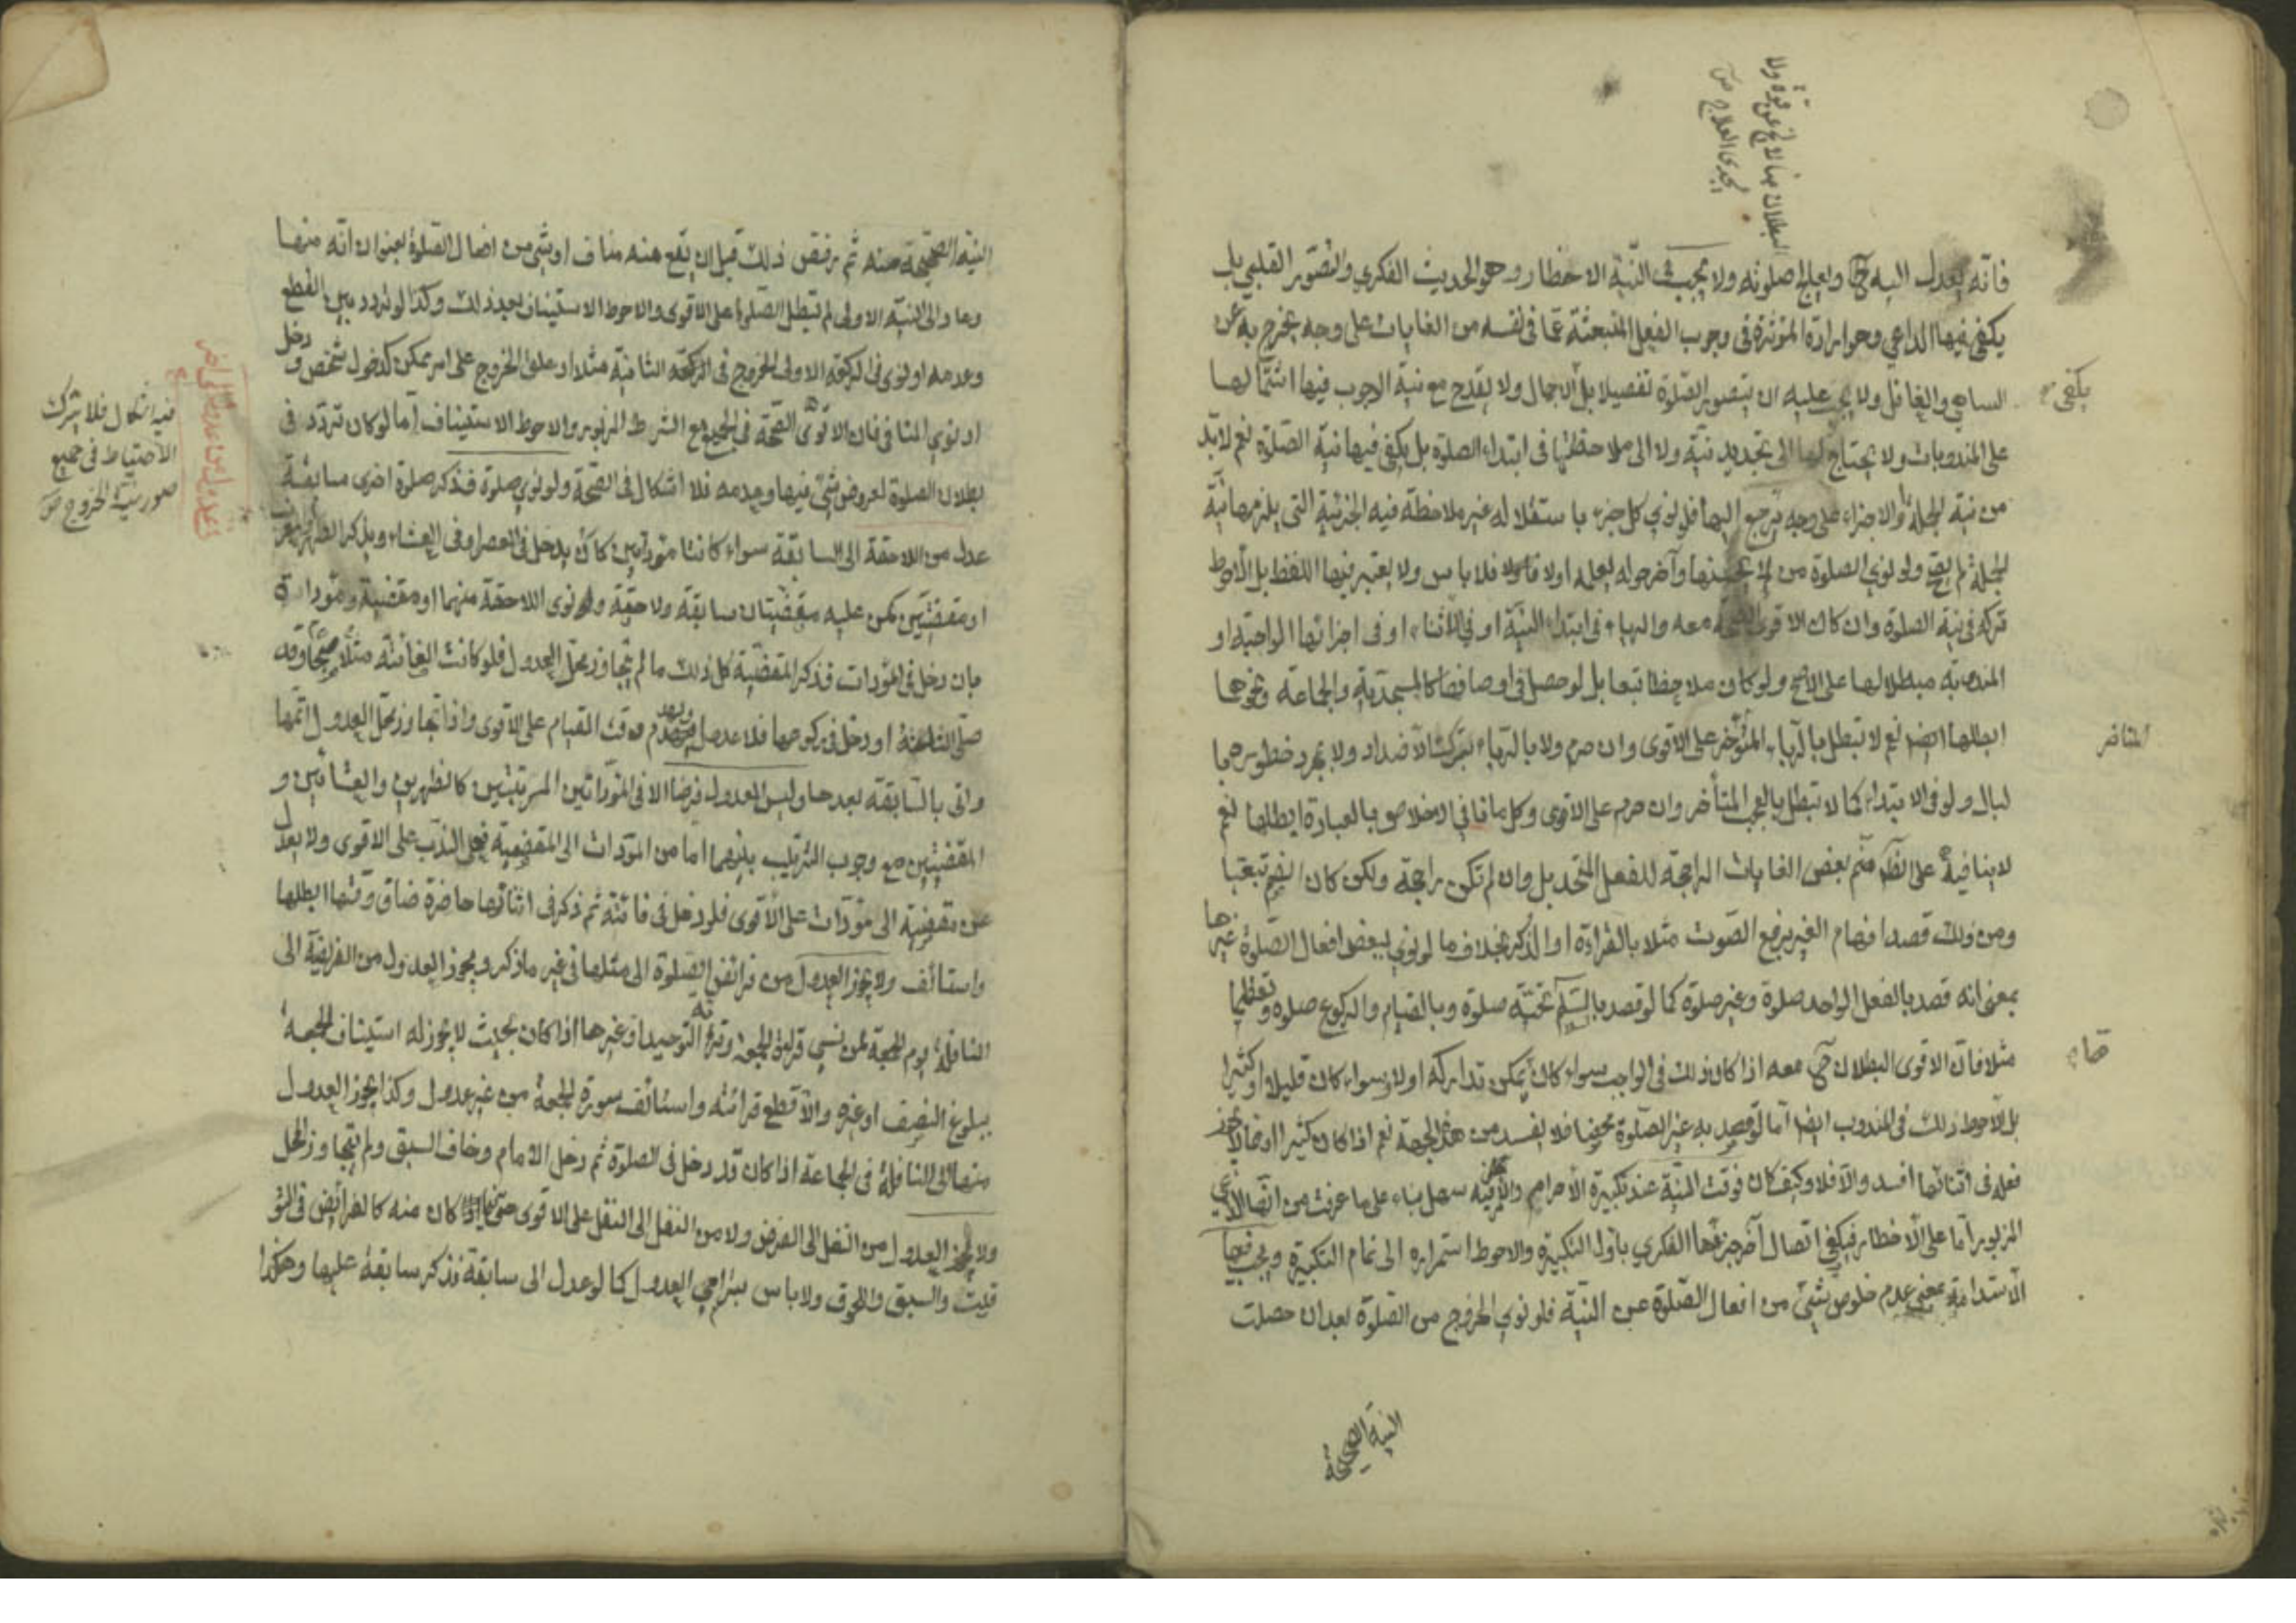 البطلان بها لا يخ عن قوة ولا
يجدى العلاج ص
فانه يعدل اليه ح وليعالج صلوته ولا يجب فى النية الاخطار وهو الحديث الفكري والتصور القلبي بل
يكفى فيها الداعي وهو ارادة المؤثرة فى وجوب الفعل المنبعثة عما فى نفسه من الغايات على وجه يخرج به عن
الساهي والغافل ولا يجب عليه ان يتصور الصلوة تفصيلا بل الاجمال ولا يقدح مع نية الوجوب فيها اشتمالها
يكفى
على المندوبات ولا يحتاج لها الى تجديد نية ولا الى ملاحظتها فى ابتداء الصلوة بل يكفى فيها نية الصلوة نعم لا بد
من نية الجملة والاجزاء على وجه يرجع اليها فلو نوي كل جزء باستقلاله غير ملاحظة فيه الجزئية التى يلزمها نية
الجملة لم يصح ولو نوي الصلوة من اول تحسينها وآخر حوله لعله اولا فلا باس ولا يعتبر فيها اللفظ بل الاحوط
تركه فى نية الصلوة وان كان الاقوى الصحة معه والرياء فى ابتداء النية او في الاثناء او فى اجزائها الواجبة او
المندوبة مبطلا لها على الاصح ولو كان ملاحظا تبعا بل لو حصل فى اوصافها كالمسجدية والجماعة ونحوها
ابطلها ايضا نعم لا تبطل بالرياء المتأخر على الاقوى وان حرم ولا بالرياء بترك الاضداد ولا بمجرد خطورهما
المتاخر
لبال ولو فى الابتداء كما لا تبطل بالعجب المتأخر وان حرم على الاقوى وكل ما نافى الاخلاص بالعبادة ابطلها نعم
لا ينافيه على الظ ضم بعض الغايات الراجحة للفعل المتحد بل وان لم تكن راجحة ولكن كان الضم تبعيا
ومن ذلك قصد افهام الغير برفع الصوت مثلا بالقراءة او الذكر بخلاف ما لو نوي ببعض افعال الصلوة غيرها
بمعنى انه قصد بالفعل الواحد صلوة وغير صلوة كما لو قصد بالتسليم تحية صلوة وبالقيام والركوع صلوة وتعظيما
مثلا فان الاقوى البطلان ح معه اذا كان ذلك فى الواجب سواء كان يمكن تداركه اولا وسواء كان قليلا او كثيرا
بل الاحوط ذلك فى المندوب ايضا اما لو قصد به غير الصلوة محضا فلا يفسد من هذه الجهة نعم اذا كان كثيرا او مما لا يجوز
فعله فى اثنائها افسد والا فلا وكيف كان فوقت النية عند تكبيرة الاحرام والامر فيه سهل بناء على ما عرفت من انها الداعي
المزبور اما على الاخطار فيكفي اتصال آخر جزئها الفكري باول التكبيرة والاحوط استمراره الى تمام التكبيرة ويجب فيها
الاستدامة بمعنى عدم خلوص شئ من افعال الصلوة عن النية فلو نوي الخروج من الصلوة بعد ان حصلت
النية الصحيحة
النية الصحيحة منه ثم رفض ذلك قبل ان يقع منه مناف او شئ من افعال الصلوة بعنوان انه منها
وعاد الى النية الاولى لم تبطل الصلوة على الاقوى والاحوط الاستيناف بعد ذلك وكذا لو تردد بين القطع
وعدمه او نوى فى الركعة الاولى الخروج فى الركعة الثانية مثلا او علق الخروج على امر ممكن كدخول شخص ودخل
او نوي المنافى فان الاقوى الصحة فى الجميع مع الشرط المزبور والاحوط الاستيناف اما لو كان تردد فى
بطلان الصلوة لعروض شئ فيها وعدمه فلا اشكال فى الصحة ولو نوي صلوة فذكر صلوة اخرى سابقة
فيه اشكال فلا يترك
الاحتياط فى جميع
صور نية الخروج ص
عدل من اللاحقة الى السابقة سواء كانتا مؤداتين كان يدخل فى العصر او فى العشاء ويذكر الظهر والمغرب
او مقضيتين كمن عليه مقضيتان سابقة ولاحقة ونوى اللاحقة منهما او مقضية ومؤداة
بان دخل فى المؤدات فذكر المقضية كل ذلك ما لم يتجاوز محل العدول فلو كانت الفائتة مثلا صبحا وقد
صلى الثالثة او دخل فى ركوعها فلا عدول وقت القيام على الاقوى واذا تجاوز محل العدول اتمها
واتى بالسابقة بعدها وليس العدول فرضا الا فى المؤداتين المترتبتين كالظهرين والعشائين و
المقضيتين مع وجوب الترتيب بينهما اما من المؤدات الى المقضية فعلى الندب على الاقوى ولا يعدل
من مقضية الى مؤدات على الاقوى فلو دخل فى فائتة ثم ذكر فى اثنائها حاضرة ضاق وقتها ابطلها
واستأنف ولا يجوز العدول من فرائض الصلوة الى مثلها فى غير ما ذكر ويجوز العدول من الفريضة الى
النافلة يوم الجمعة لمن نسي قراءة الجمعة وقرء التوحيد او غيرها اذا كان بحيث لا يجوز له استيناف الجمعة
ببلوغ النصف او غيره والا قطع قرائته واستأنف سورة الجمعة من غير عدول وكذا يجوز العدول
منها الى النافلة فى الجماعة اذا كان قد دخل فى الصلوة ثم دخل الامام وخاف السبق ولم يتجاوز المحل
ولا يجوز العدول من النفل الى الفرض ولا من النفل الى النفل على الاقوى حتى فيما كان منه كالفرائض فى التو
قيت والسبق واللحوق ولا باس بترامي العدول كما لو عدل الى سابقة فذكر سابقة عليها وهكذا